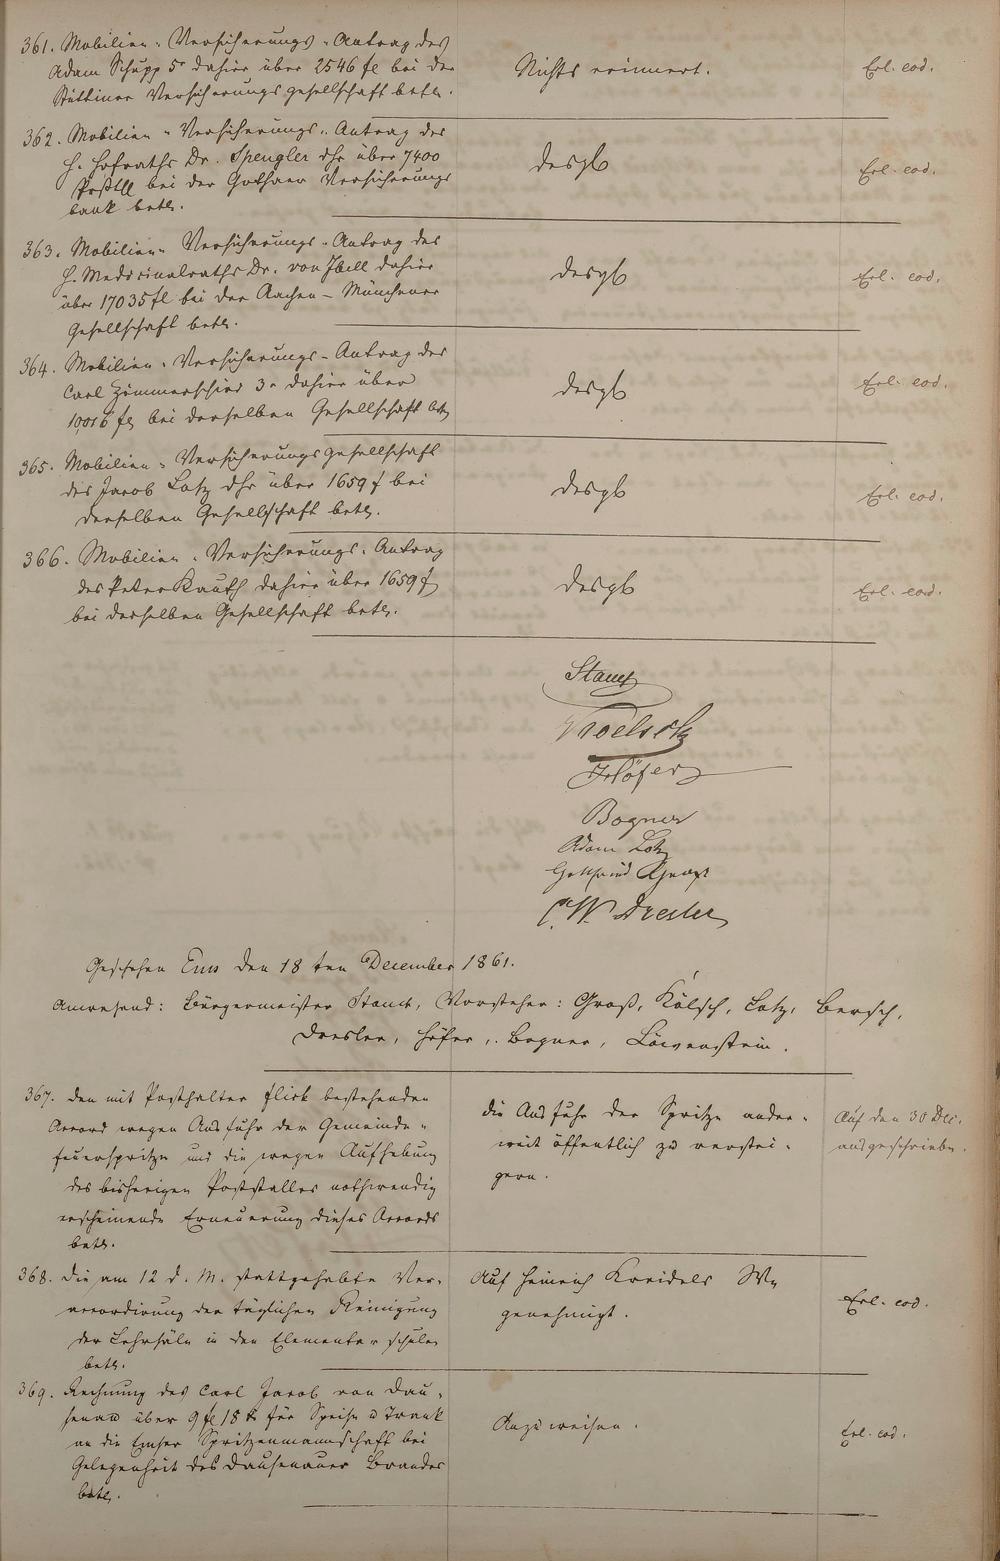 361. Mobilien-Versicherungs-Antrag des
Adam Schupp 5r dahier über 2546 fl bei der
Stettiner Versicherungsgesellschaft betr.
Nichts erinnert.
Erl. eod.
362. Mobilien-Versicherungs-Antrag des
H. Hofraths Dr. Spengler dhr über 7400
bei der Gothaer Versicherungs
bank betr.
desgl
Erl. eod.
363. Mobilien-Versicherungs-Antrag des
H. Medicinalraths Dr. von Ibell dahier
über 17035 fl bei der Aachen-Münchener
Gesellschaft betr.
desgl
Erl. eod.
364. Mobilien-Versicherungs-Antrag des
Carl Zimmerschied 3r dahier über
10016 fl bei derselben Gesellschaft btr
desgl
Erl. eod.
365. Mobilien-Versicherungsgesellschaft
des Jacob Lotz dhr über 1659 f bei
derselben Gesellschaft betr.
desgl
Erl. eod.
366. Mobilien-Versicherungs-Antrag
des Peter Kauth dahier über 1659 f
bei derselben Gesellschaft betr.
desgl
Erl. eod.
Stamt
Höfer
Bogner
Adam Lotz
Gottfried
C. W. Dresler
Geschehen Ems den 18ten December 1861.
Anwesend: Bürgermeister Stamt, Vorsteher: Groß, Kölsch, Lotz, Bersch,
Dresler, Höfer, Bogner, Löwenstein.
367. Den mit Posthalter Flick bestehenden
Accord wegen Ausfuhr der Gemeinde-
feuerspritze und die wegen Aufhebung
des bisherigen Poststalles nothwendig
erscheinende Erneuerung dieses Accords
betr.
Die Ausfuhr der Spritze ander-
weit öffentlich zu verstei-
gern.
Auf den 30 Dec.
ausgeschrieben.
368. Die am 12 d. M. stattgehabte Ver-
accordirung der täglichen Reinigung
der Lehrsäle in den Elementarschulen
betr.
Auf Heinrich Kreidels Wwe
genehmigt.
Erl. eod.
369. Rechnung des Carl Jacob von Dau-
senau über 9 fl 18 kr für Speise u Trank
an die Emser Spritzenmannschaft bei
Gelegenheit des Dausenauer Brandes
betr.
Anzuweisen.
Erl. eod.